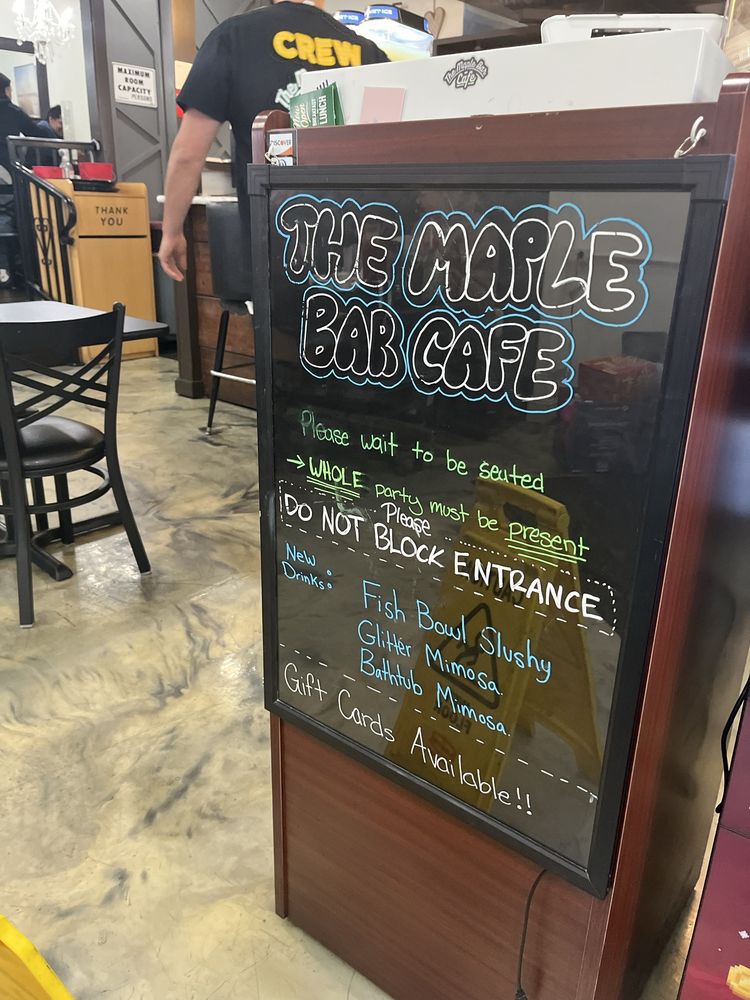 CREW
MAXIMUM
ROOM
CAPACITY
PERSONS
The Maple Bar
Cafe
Now
Open
LUNCH
DISCOVER
THANK
YOU
THE MAPLE
BAR CAFE
Please wait to be seated
→ WHOLE party must be present
Please
DO NOT BLOCK ENTRANCE
New
Drinks:
Fish Bowl Slushy
Glitter Mimosa
Bathtub Mimosa.
Gift Cards Available!!